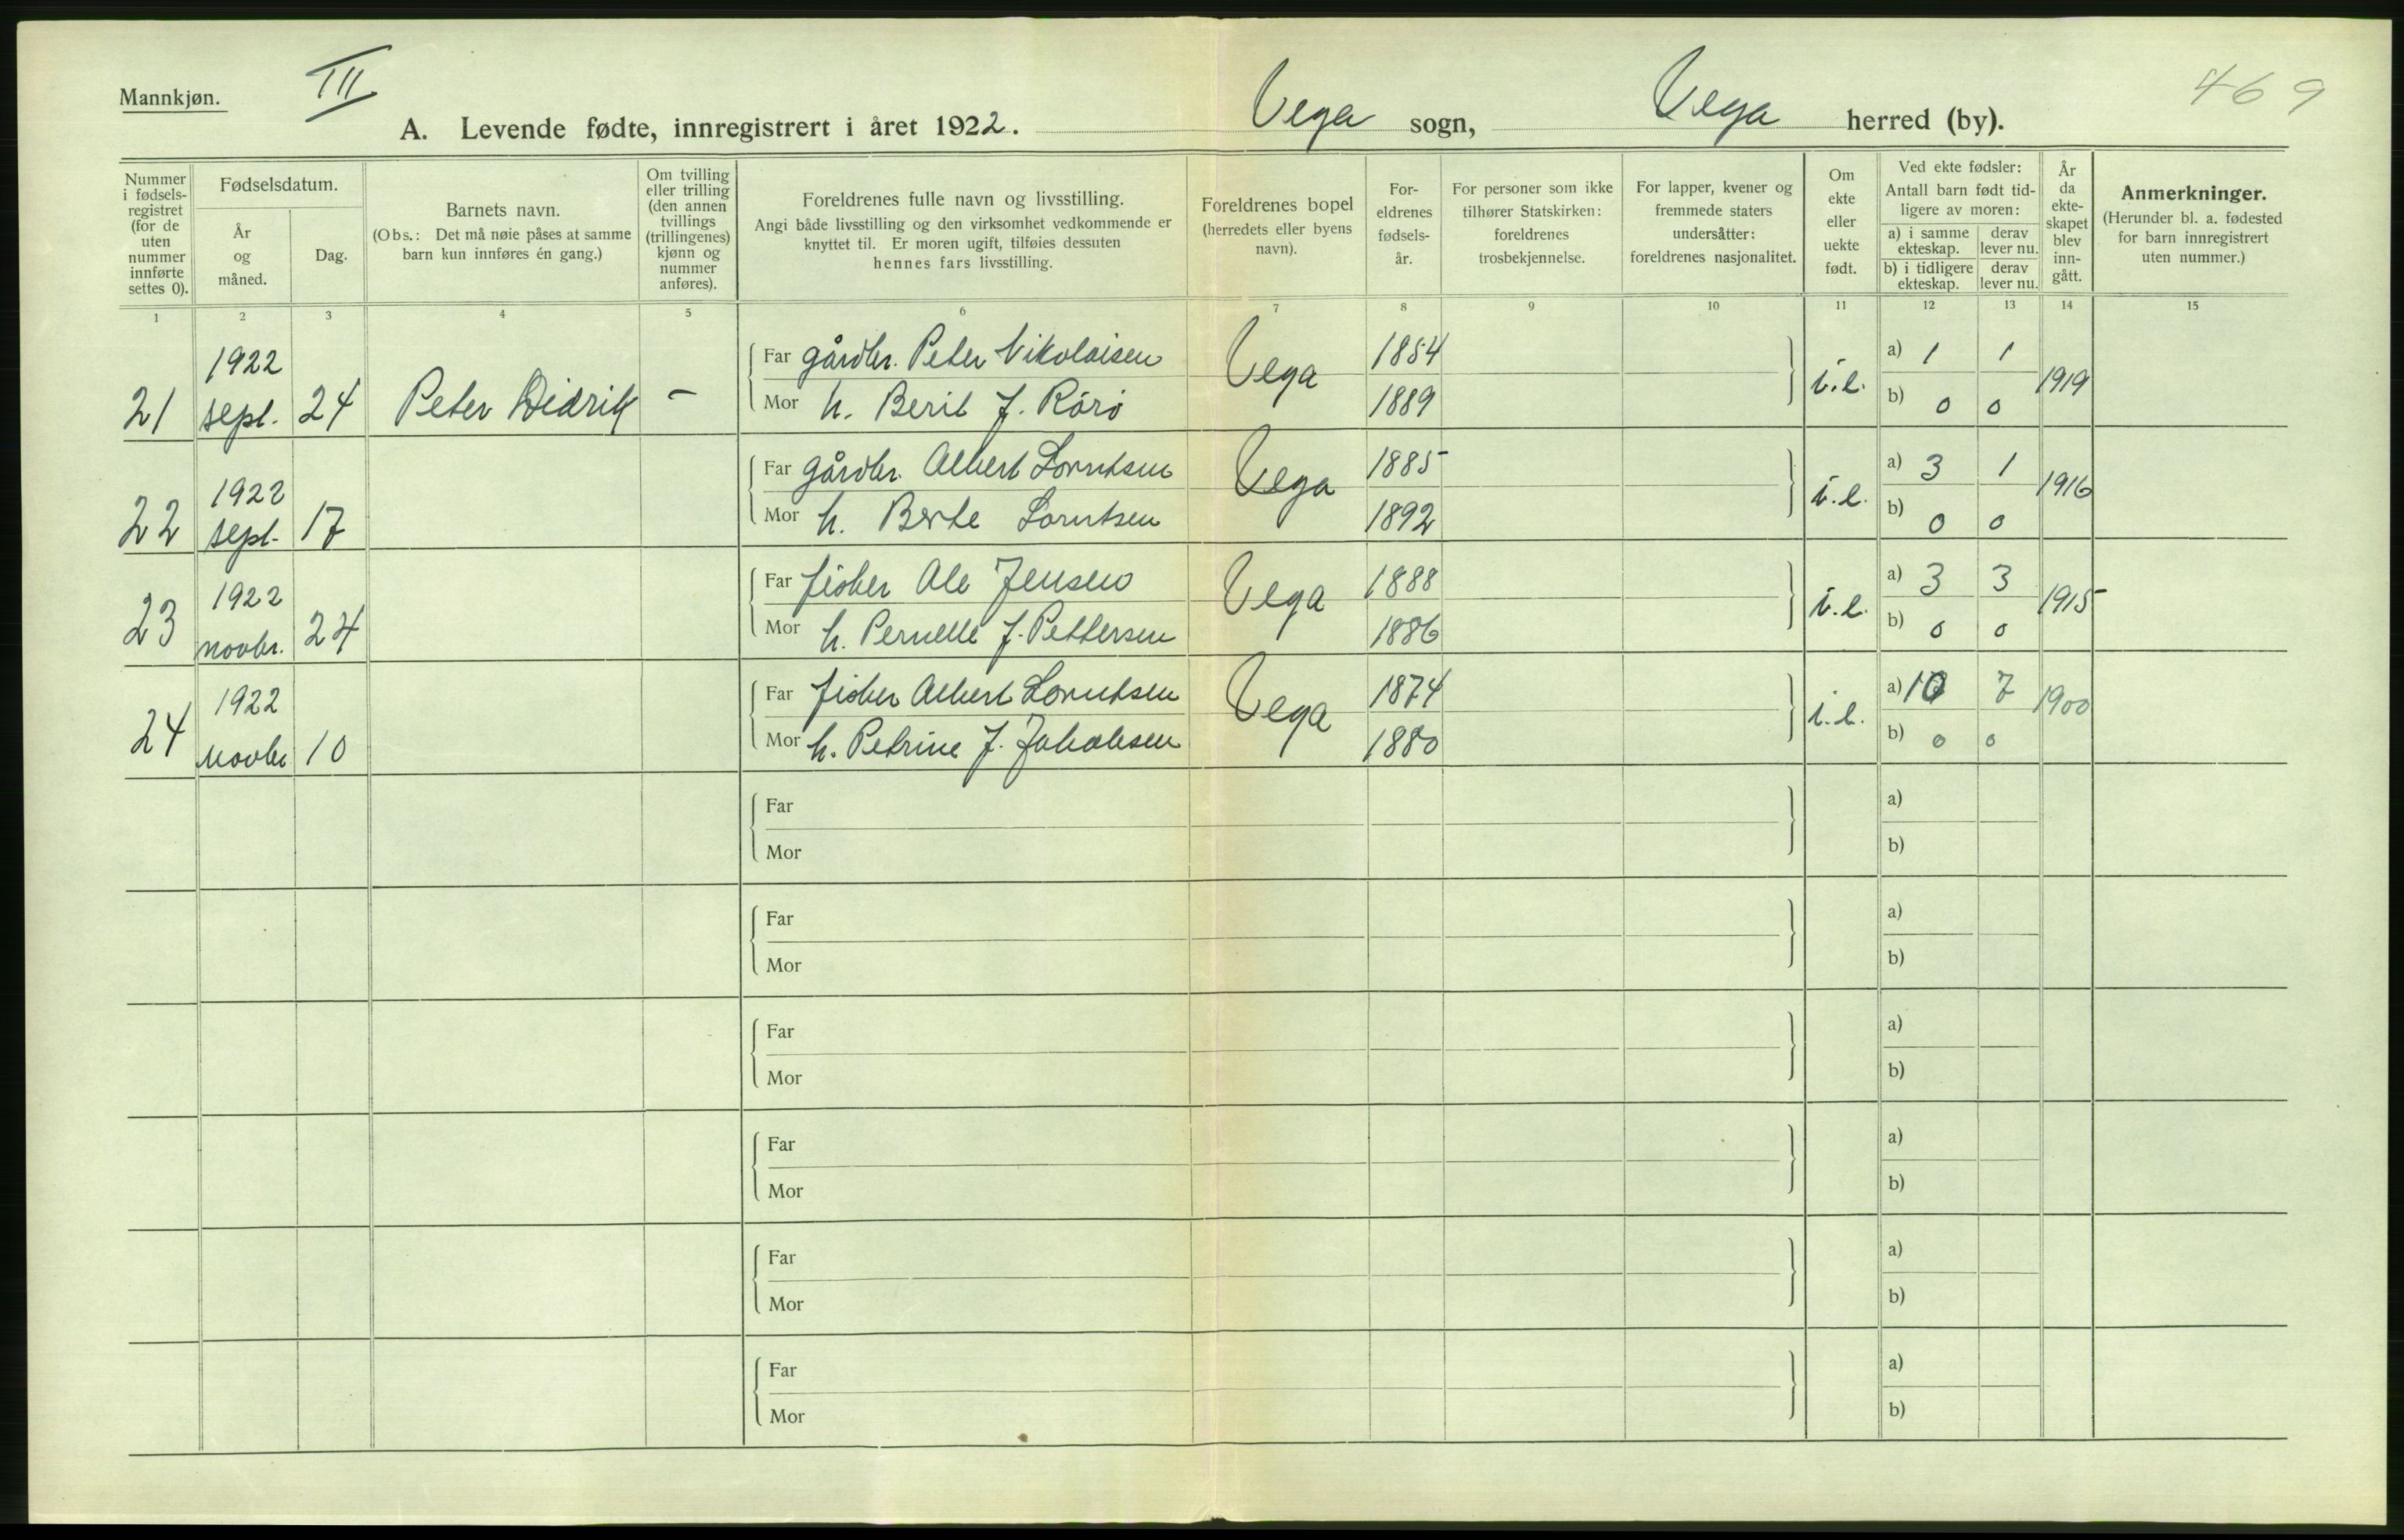 Mannkjøn.
III
469
A. Levende fødte, innregistrert i året 1922. Vega sogn, Vega herred (by).
Nummer i fødsels-registret (for de uten nummer innførte settes 0).
Fødselsdatum.
År og måned.
Dag.
Barnets navn.
(Obs.: Det må nøie påses at samme barn kun innføres én gang.)
Om tvilling eller trilling (den annen tvillings (trillingenes) kjønn og nummer anføres).
Foreldrenes fulle navn og livsstilling.
Angi både livsstilling og den virksomhet vedkommende er knyttet til. Er moren ugift, tilføies dessuten hennes fars livsstilling.
Foreldrenes bopel (herredets eller byens navn).
For-eldrenes fødsels-år.
For personer som ikke tilhører Statskirken: foreldrenes trosbekjennelse.
For lapper, kvener og fremmede staters undersåtter: foreldrenes nasjonalitet.
Om ekte eller uekte født.
Ved ekte fødsler:
Antall barn født tid-ligere av moren:
a) i samme ekteskap. derav lever nu.
b) i tidligere ekteskap. derav lever nu.
År da ekte-skapet blev inn-gått.
Anmerkninger.
(Herunder bl. a. fødested for barn innregistrert uten nummer.)
1 2 3 4 5 6 7 8 9 10 11 12 13 14 15
21 1922 sept. 24 Peter Didrik –
Far gårdbr. Peter Nikolaisen Vega 1884 i.e. a) 1 1 1919
Mor h. Berit f. Rörö 1889 b) 0 0
22 1922 sept. 17
Far gårdbr. Albert Lorntsen Vega 1885 i.e. a) 3 1 1916
Mor h. Berte Lorntsen 1892 b) 0 0
23 1922 novbr. 24
Far fisker Ole Jensen Vega 1888 i.e. a) 3 3 1915
Mor h. Pernelle f. Pettersen 1886 b) 0 0
24 1922 novbr 10
Far fisker Albert Lorntsen Vega 1874 i.e. a) 10 7 1900
Mor h. Petrine f. Jakobsen 1880 b) 0 0
Far a)
Mor b)
Far a)
Mor b)
Far a)
Mor b)
Far a)
Mor b)
Far a)
Mor b)
Far a)
Mor b)